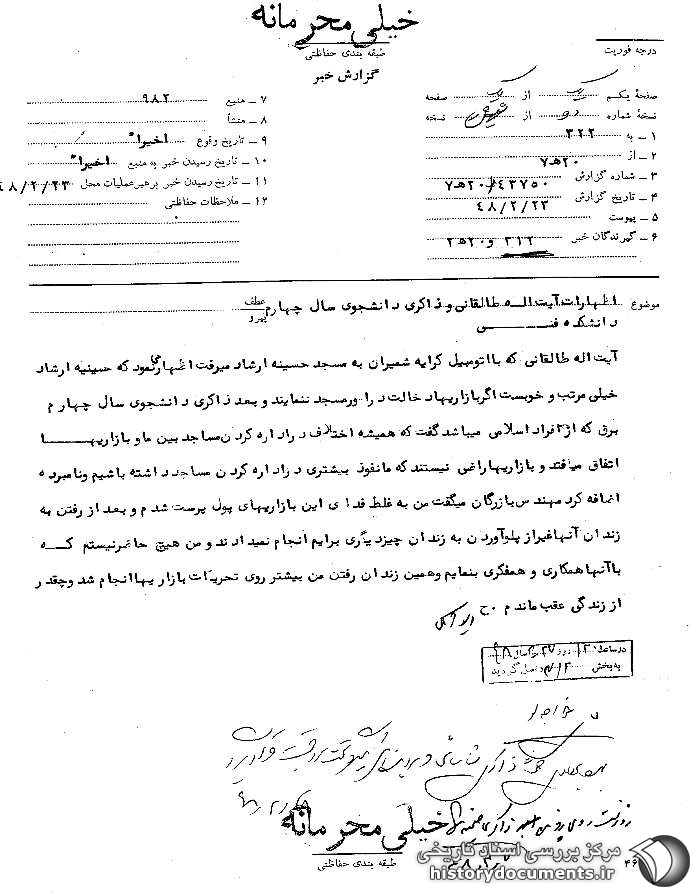 خیلی محرمانه
طبقه بندی حفاظتی
درجه فوریت
گزارش خبر
صفحهٔ یکم یک از یک صفحه
نسخهٔ شماره دو از نسخه
۱ ـ به ۳۲۲
۲ ـ از ۲۰هـ۷
۳ ـ شماره گزارش ۲۰هـ۷/۴۳۷۵۰
۴ ـ تاریخ گزارش ۴۸/۲/۲۳
۵ ـ پیوست
۶ ـ گیرندگان خبر ۳۱۲ و ۲۰هـ۲
۷ ـ منبع ۹۸۲
۸ ـ منشأ
۹ ـ تاریخ وقوع اخیرا"
۱۰ ـ تاریخ رسیدن خبر به منبع اخیرا"
۱۱ ـ تاریخ رسیدن خبر برهبر عملیات محل ۴۸/۲/۲۳
۱۲ ـ ملاحظات حفاظتی
موضوع اظهارات آیت اله طالقانی و ذاکری دانشجوی سال چهارم عطف
پیرو
دانشکده فنی
آیت اله طالقانی که با اتومبیل کرایه شمیران به مسجد حسینه ارشاد میرفت اظهار میخمود که حسینیه ارشاد
خیلی مرتب و خوبست اگر بازاریها دخالت در امور مسجد ننمایند و بعد ذاکری دانشجوی سال چهارم
برق که از افراد اسلامی میباشد گفت که همیشه اختلاف در اداره کردن مساجد بین ما و بازاریها
اتفاق میافتد و بازاریها راضی نیستند که ما نفوذ بیشتری در اداره کردن مساجد داشته باشیم و نامبرده
اضافه کرد مهندس بازرگان میگفت من به غلط فدای این بازاریهای پول پرست شدم و بعد از رفتن به
زندان آنها غیر از پلو آوردن به زندان چیز دیگری برایم انجام نمیدادند و من هیچ حاضر نیستم که
با آنها همکاری و همفکری بنمایم و همین زندان رفتن من بیشتر روی تحریکات بازاریها انجام شد و چقدر
از زندگی عقب ماندم ح
در ساعت ۱۲ روز ۲۷ سال ۴۸
به بخش ۳۱۲ واصل گردید
خیلی محرمانه
طبقه بندی حفاظتی
۴۶
مرکز بررسی اسناد تاریخی
historydocuments.ir